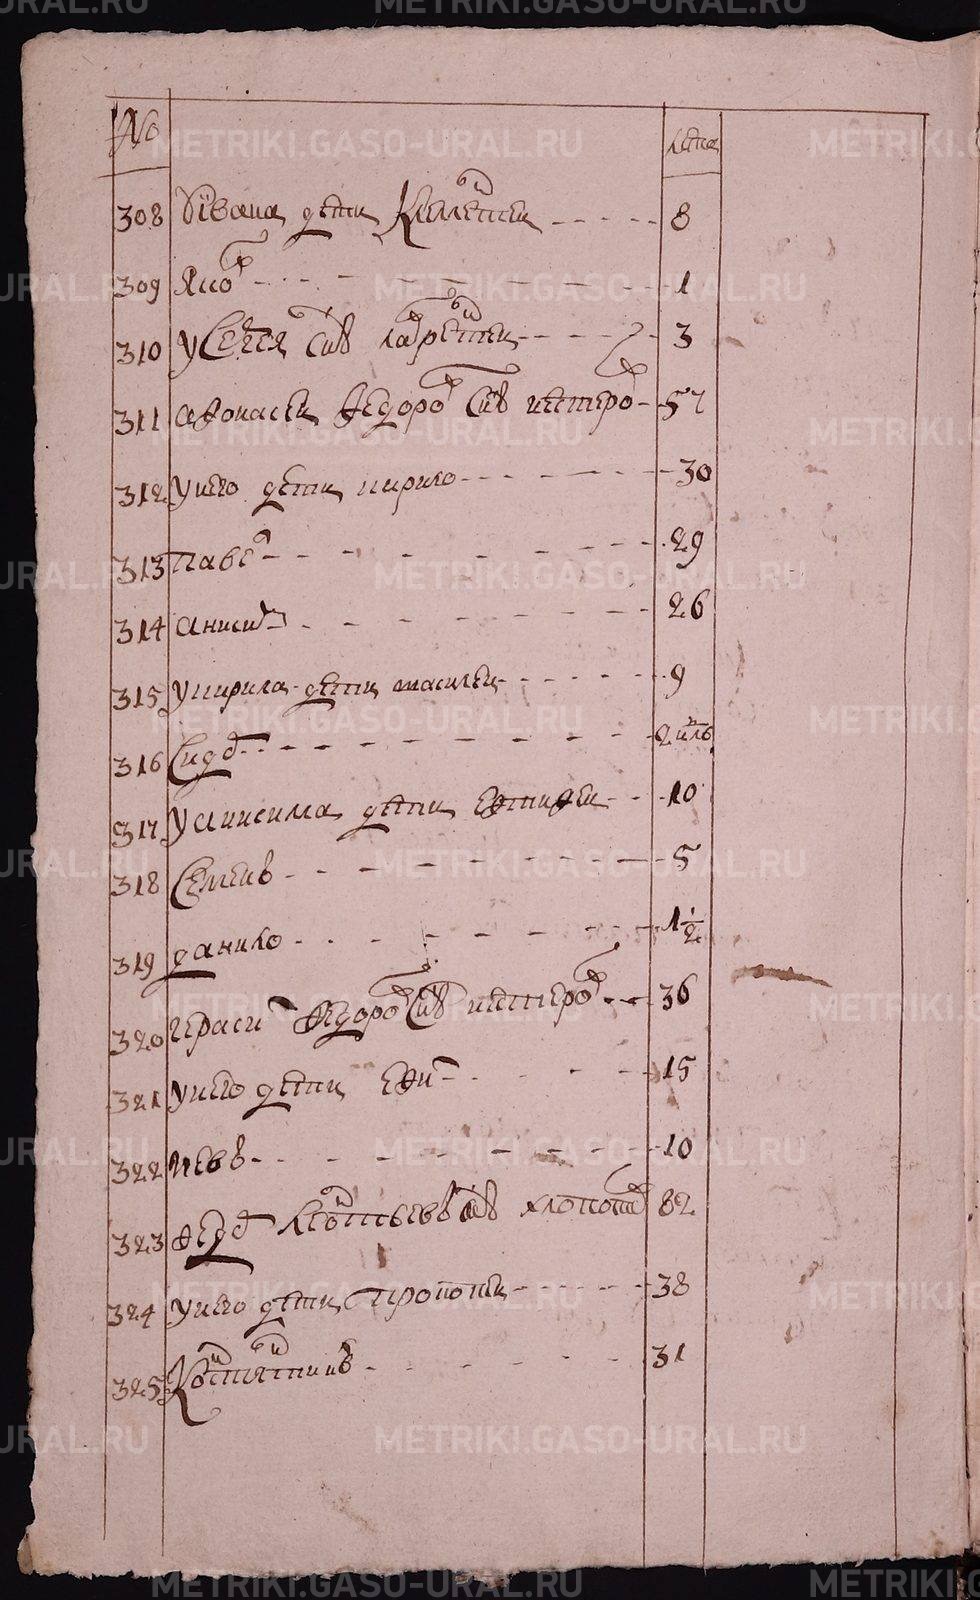 METRIKI.GASO-URAL.RU
№ лета
308 Уивана дети Клементеи 8
309 Яков 1
310 У сегея снъ лаврентеи 3
311 афонасеи федоров снъ нестеров 57
312 унего дети кирило 30
313 павел 29
314 анисим 26
315 укирила дети василеи 9
316 Сидор 2 м҃ць
317 Уанисима дети евтифеи 10
318 Семенъ 5
319 данило 1 1/2
320 гараси федоров снъ нестеров 36
321 унего дети ефим 15
322 левъ 10
323 федор снъ 82
324 унего дети прокопеи 38
325 Костянтинъ 31